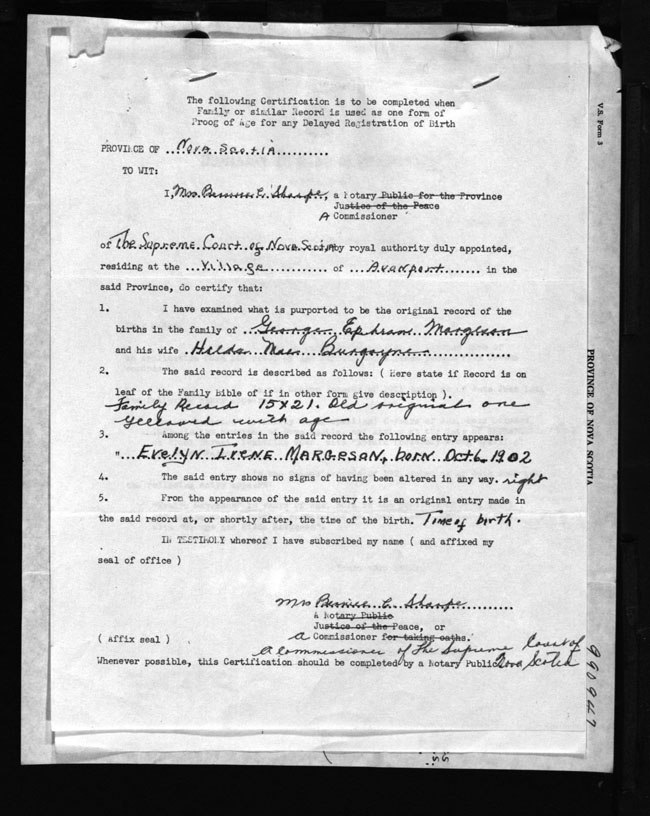 The following Certification is to be completed when
Family or similar Record is used as one form of
Proog of Age for any Delayed Registration of Birth
PROVINCE OF ...Nova Scotia..........
TO WIT:
I, Mrs. Bernice C. Sharpe, a Notary Public for the Province
Justice of the Peace
A Commissioner
of The Supreme Court of Nova Scotia by royal authority duly appointed,
residing at the ...Village............ of ...Avonport....... in the
said Province, do certify that:
1. I have examined what is purported to be the original record of the
births in the family of ..George Ephraim Margeson
and his wife .Hilda Mae Burgoyne..............
2. The said record is described as follows: ( Here state if Record is on
leaf of the Family Bible of if in other form give description ).
Family Record 15x21. Old original one
yellowed with age
3. Among the entries in the said record the following entry appears:
"...Evelyn Irene Margeson, born Oct 6 1902
4. The said entry shows no signs of having been altered in any way. right
5. From the appearance of the said entry it is an original entry made in
the said record at, or shortly after, the time of the birth. Time of birth.
IN TESTIMONY whereof I have subscribed my name ( and affixed my
seal of office )
Mrs Bernice C. Sharpe..........
A Notary Public
Justice of the Peace, or
A Commissioner for taking oaths.
( Affix seal )
A Commissioner of The Supreme Court of
Nova Scotia
Whenever possible, this Certification should be completed by a Notary Public
V.S. Form 3
PROVINCE OF NOVA SCOTIA